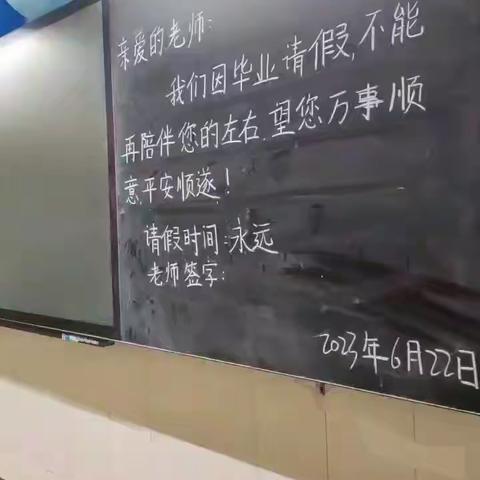 亲爱的老师:
我们因毕业请假,不能
再陪伴您的左右.望您万事顺
意,平安顺遂!
请假时间:永远
老师签字:
2023年6月22日